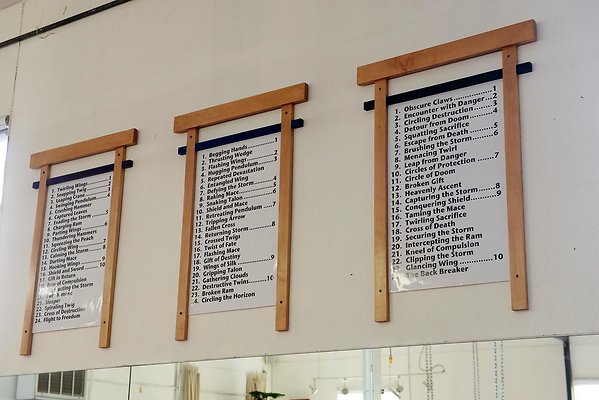 1. Twirling Wings 1
2. Snapping Twig
3. Leaping Crane
4. Swinging Pendulum
5. Crushing Hammer
6. Captured Leaves
7. Evading the Storm 5
8. Charging Ram
9. Parting Wings 6
10. Thrusting Hammers
11. Squeezing the Peach
12. Circling Wing
13. Calming the Storm 8
14. Darting Mace
15. Hooking Wings 9
16. Shield and Sword 10
17. Gift in Return
18. Bow of Compulsion
the Storm
21. Sleeper
22. Spiraling Twig
23. Cross of Destruction
24. Flight to Freedom
1. Begging Hands 1
2. Thrusting Wedge
3. Flashing Wings 2
4. Hugging Pendulum 3
5. Repeated Devastation
6. Entangled Wing
7. Defying the Storm 4
8. Raking Mace 5
9. Snaking Talon 6
10. Shield and Mace
11. Retreating Pendulum 7
12. Tripping Arrow
13. Fallen Cross
14. Returning Storm 8
15. Crossed Twigs
16. Twist of Fate
17. Flashing Mace
18. Gift of Destiny
19. Wings of Silk 9
20. Gripping Talon
21. Gathering Clouds
22. Destructive Twins 10
23. Broken Ram
24. Circling the Horizon
1. Obscure Claws 1
2. Encounter with Danger 2
3. Circling Destruction 3
4. Detour from Doom 4
5. Squatting Sacrifice
6. Escape from Death 5
7. Brushing the Storm 6
8. Menacing Twirl
9. Leap from Danger
10. Circles of Protection 7
11. Circle of Doom
12. Broken Gift
13. Heavenly Ascent
14. Capturing the Storm 8
15. Conquering Shield 9
16. Taming the Mace
17. Twirling Sacrifice
18. Cross of Death
19. Securing the Storm
20. Intercepting the Ram
21. Kneel of Compulsion
22. Clipping the Storm
23. Glancing Wing 10
The Back Breaker